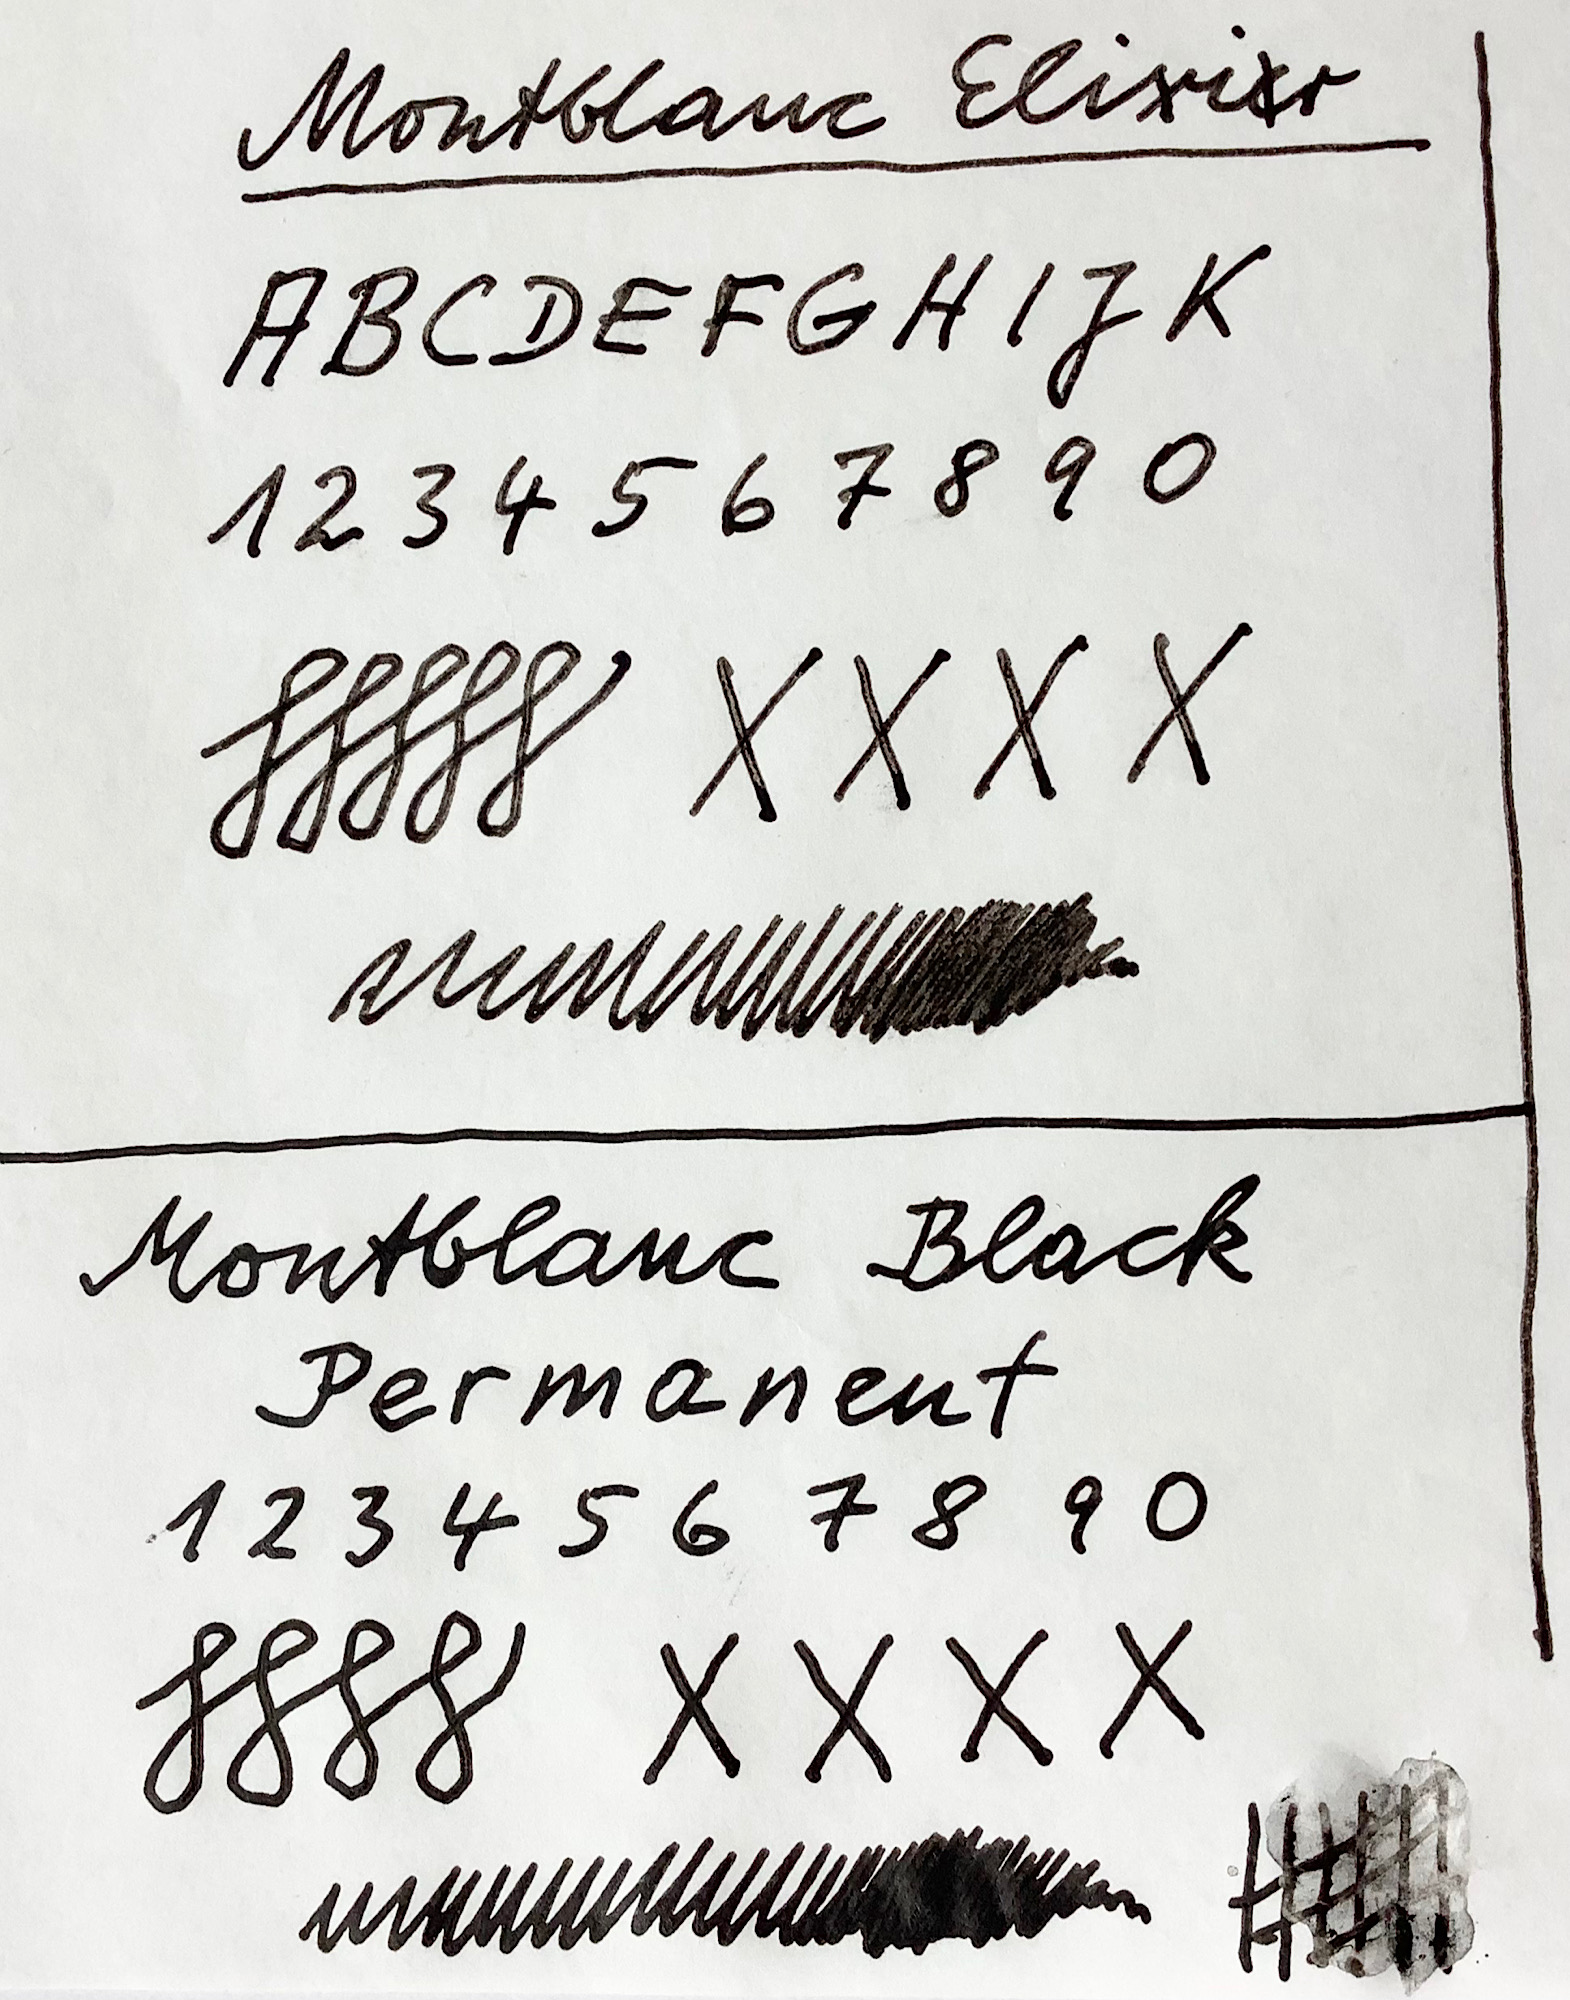 Montblanc Elixier
ABCDEFGHIJK
1234567890
X X X X
Montblanc Black
Permanent
1234567890
X X X X